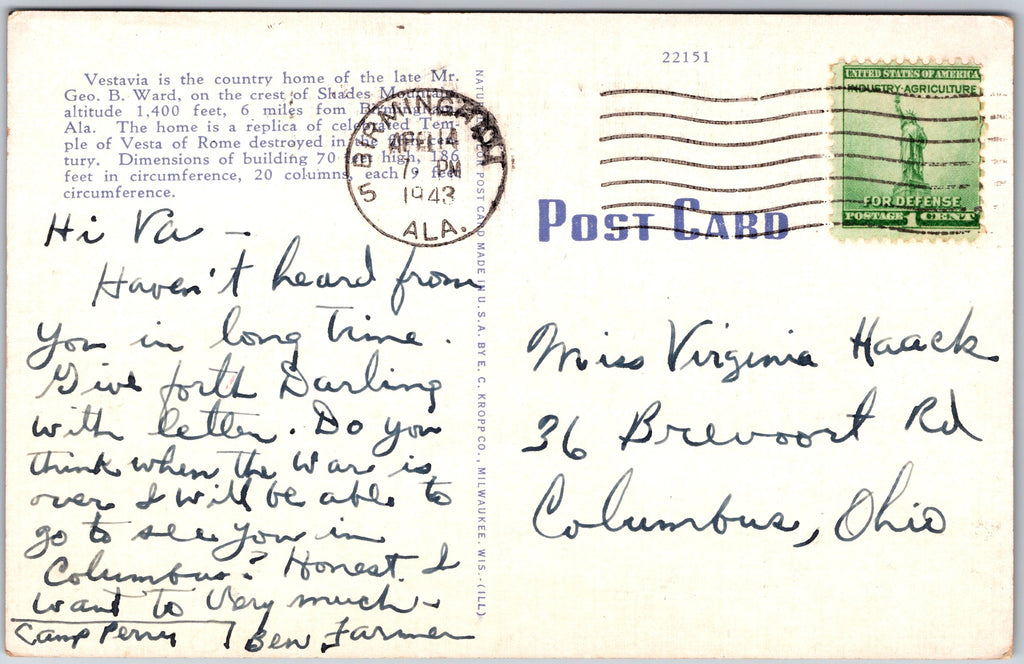 Vestavia is the country home of the late Mr.
Geo. B. Ward, on the crest of Shades Mountain,
altitude 1,400 feet, 6 miles fom Birmingham,
Ala. The home is a replica of celebrated Tem-
ple of Vesta of Rome destroyed in the
tury. Dimensions of building 70 ft. high, 186
feet in circumference, 20 columns, each 9 feet
circumference.
Hi Va -
Haven't heard from
you in long time.
Give forth Darling
with letter. Do you
think when the War is
over I will be able to
go to see you in
Columbus? Honest I
want to very much -
Camp Perry
Ben Farmer
BIRMINGHAM
APR 14
7 PM
1943
ALA.
POST CARD MADE IN U.S.A. BY E. C. KROPP CO., MILWAUKEE, WIS.-(ILL)
22151
UNITED STATES OF AMERICA
INDUSTRY·AGRICULTURE
FOR DEFENSE
POSTAGE 1 CENT
POST CARD
Miss Virginia Haack
36 Brevoort Rd
Columbus, Ohio